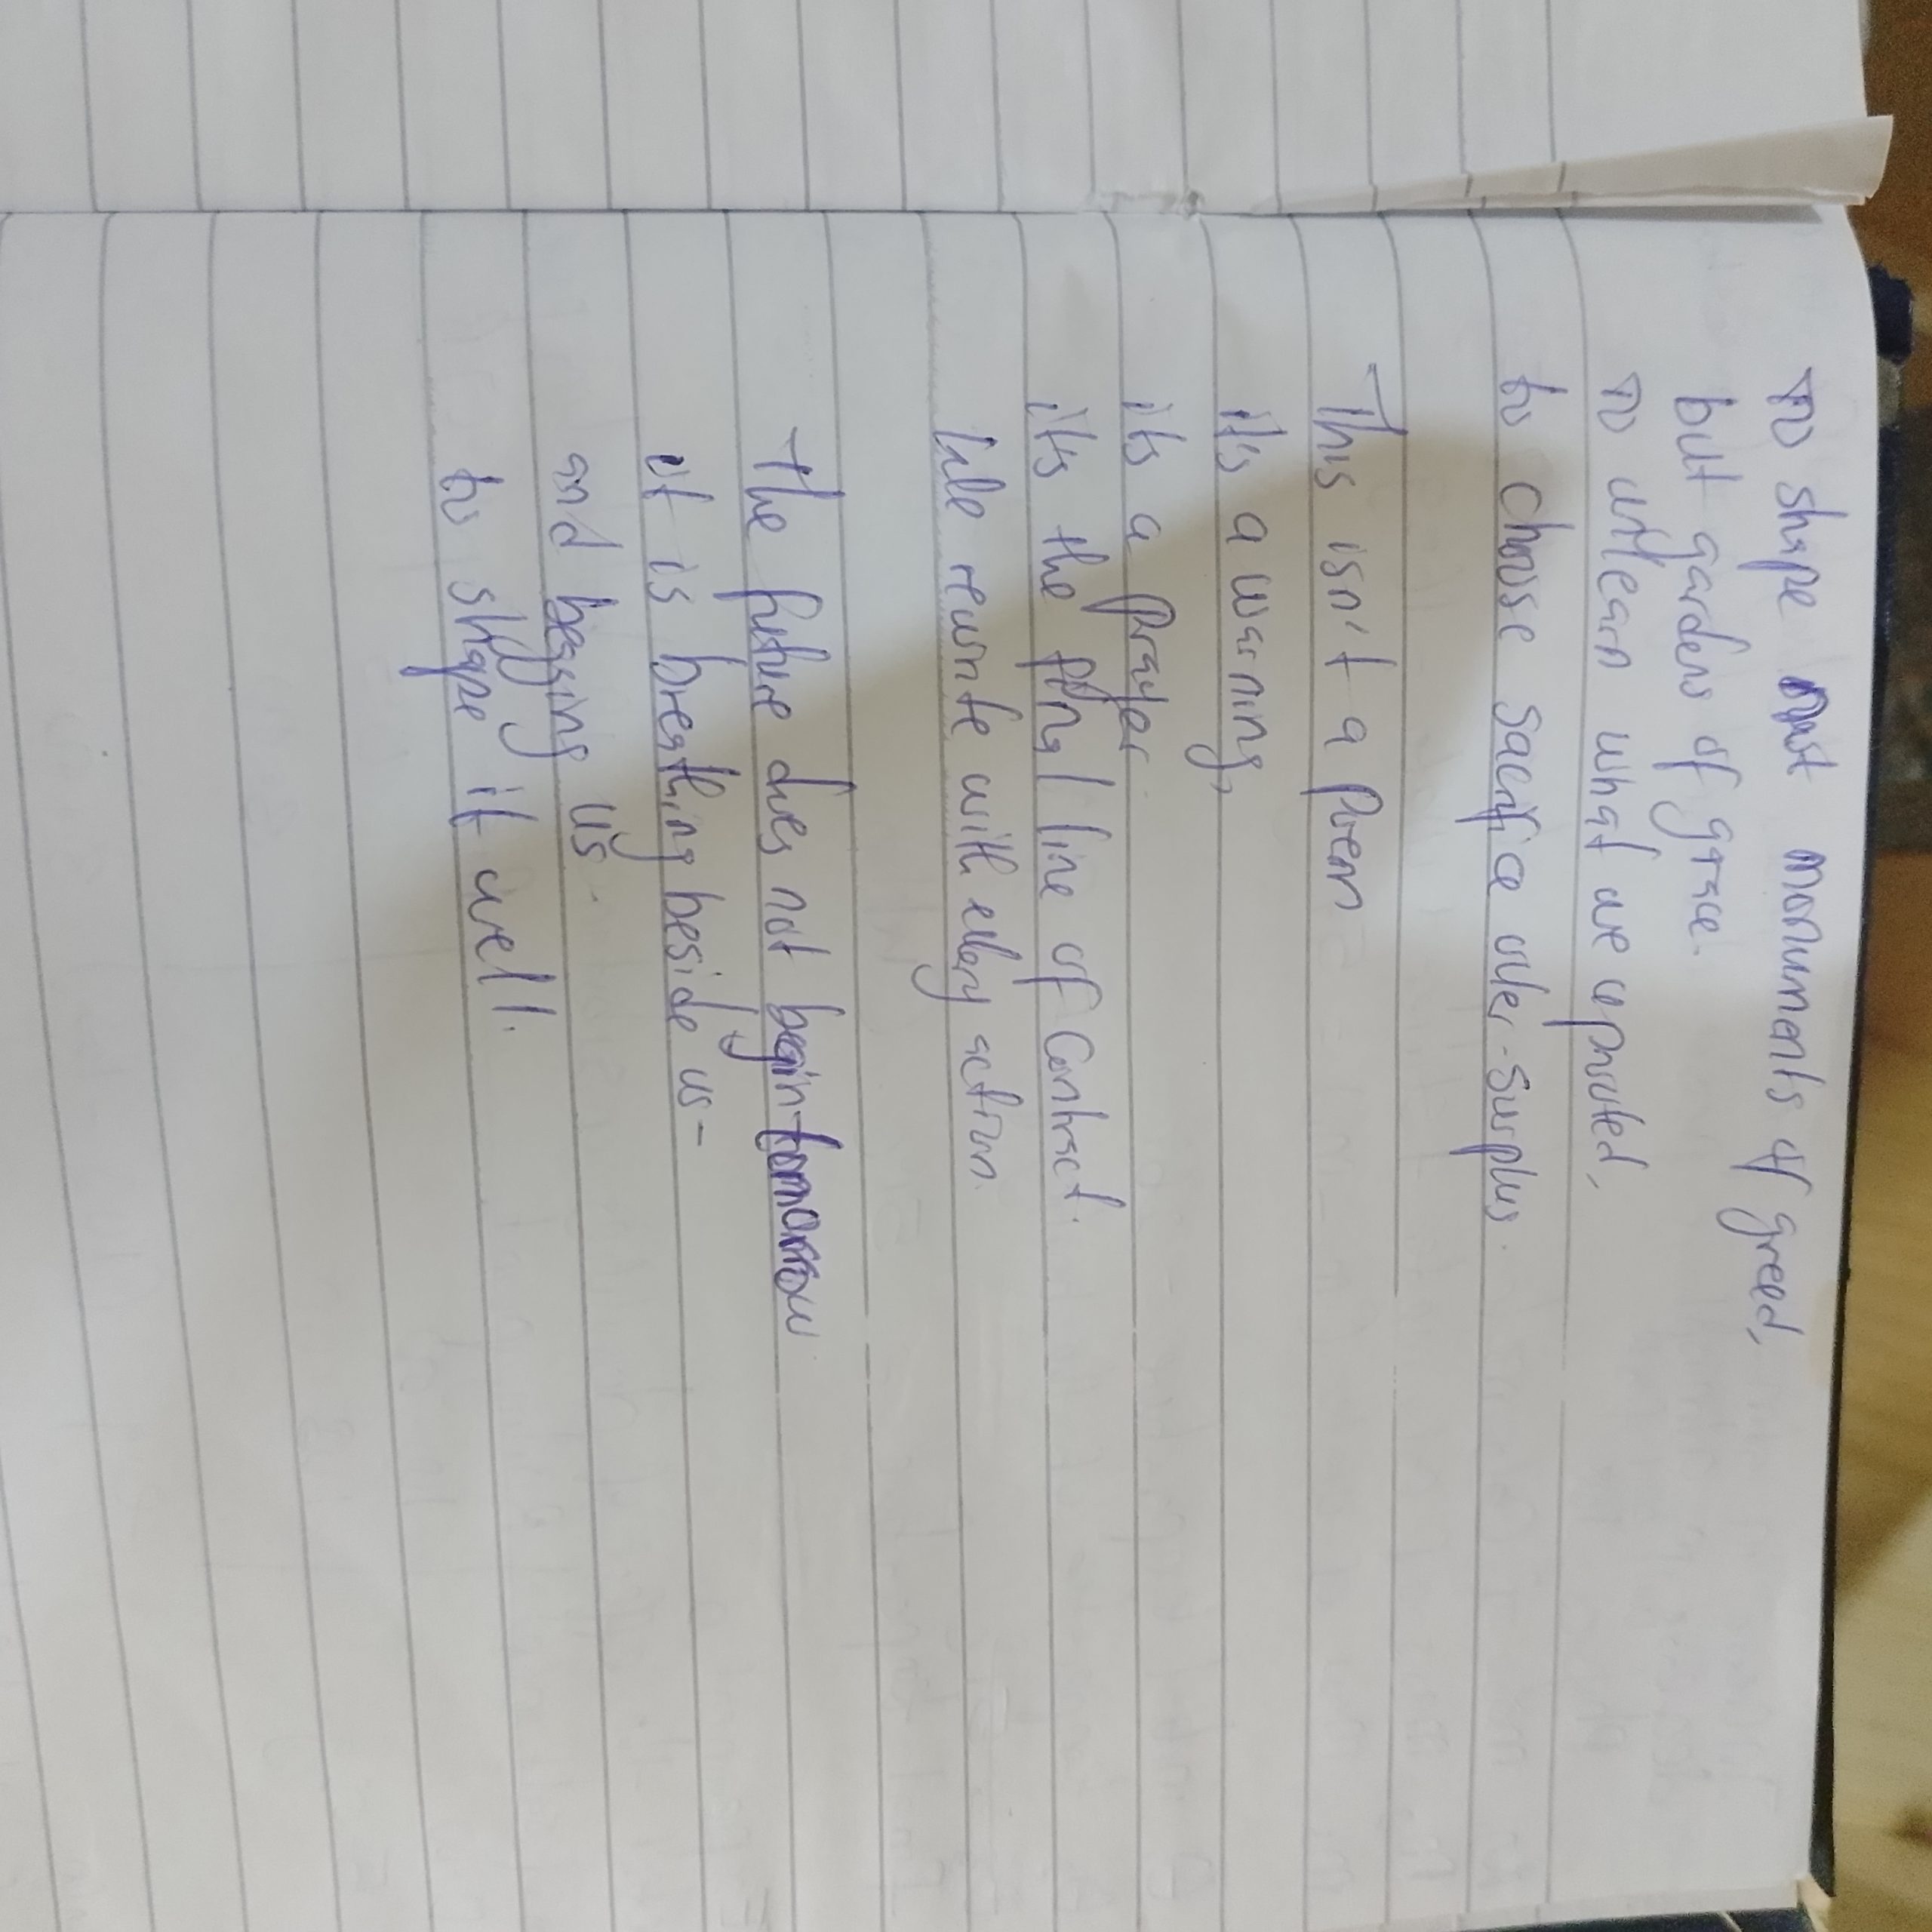 to shape not monuments of greed,
but gardens of grace.
to unlearn what we uprooted,
to choose sacrifice over surplus.
This isn't a poem
it's a warning,
it's a prayer.
it's the final line of contract.
We rewrite with every action.
The future does not begin tomorrow
it is breathing beside us-
and begging us.
to shape it well.